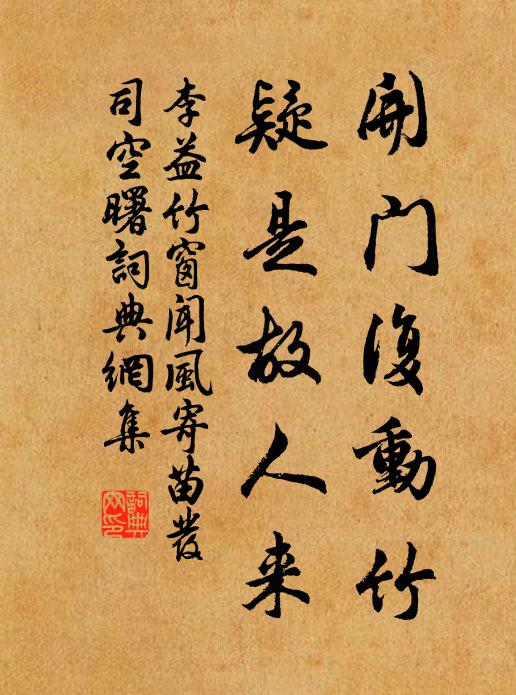 開门復動竹
疑是故人来
李益竹窗闻風寄苗發
司空曙詞典網集
詞典网印